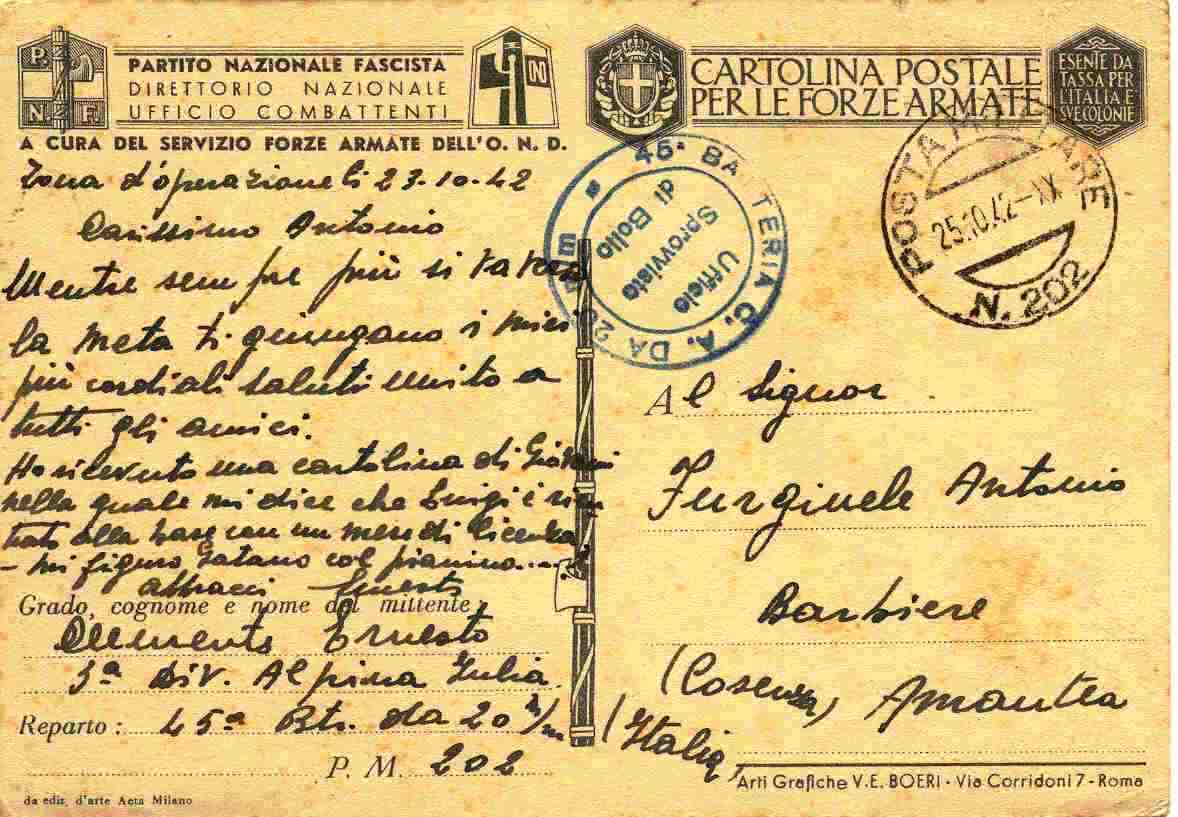 P. N. F.
PARTITO NAZIONALE FASCISTA
DIRETTORIO NAZIONALE
UFFICIO COMBATTENTI
A CURA DEL SERVIZIO FORZE ARMATE DELL'O. N. D.
CARTOLINA POSTALE
PER LE FORZE ARMATE
ESENTE DA
TASSA PER
L'ITALIA E
SVE COLONIE
Zona d'operazione li 23-10-42
Carissimo Antonio
Mentre sempre più si
la meta ti giungano i miei
più cordiali saluti unito a
tutti gli amici.
Ho ricevuto una cartolina di Giovanni
nella quale mi dice che Luigi è rien
trato alla base con un mese di licenza
- mi figuro col pianino....
abbracci Ernesto
Grado, cognome e nome del mittente
Clemente Ernesto
3ª Div. Alpina Julia
Reparto: 45ª Btr. da 20 m/m
P. M. 202
da ediz. d'arte Acta Milano
45ª BATTERIA C. A. DA 20 mm
Ufficio
Sprovvisto
di Bollo
POSTA MILITARE
25.10.42-XX
N. 202
Al Signor
Furgiuele Antonio
Barbiere
(Cosenza) Amantea
(Italia)
Arti Grafiche V. E. BOERI - Via Corridoni 7 - Roma